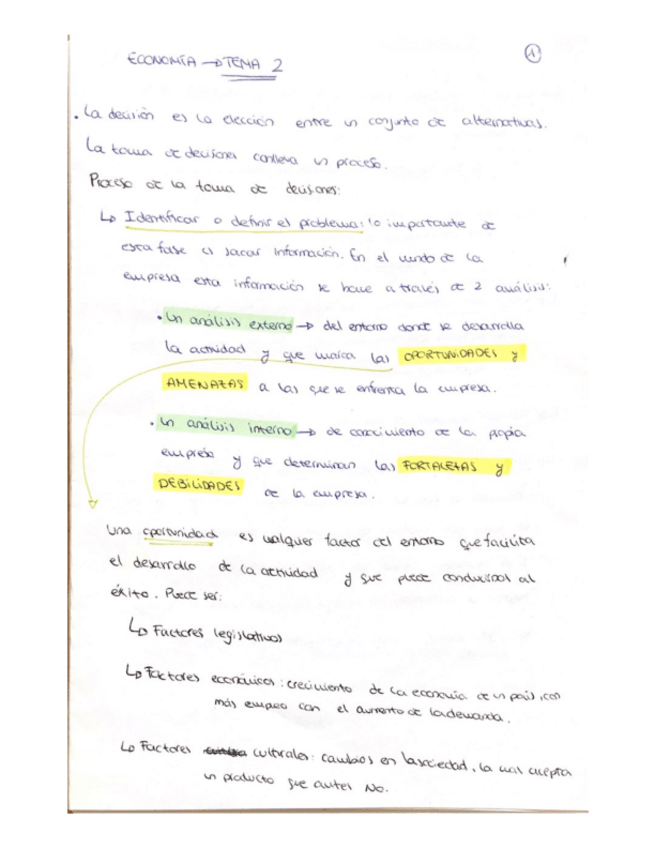 ECONOMÍA → TEMA 2
1
• La decisión es la elección entre un conjunto de alternativas.
La toma de decisiones conlleva un proceso.
Proceso de la toma de decisiones:
↳ Identificar o definir el problema: lo importante de
esta fase es sacar información. En el mundo de la
empresa esta información se hace a través de 2 análisis:
• Un análisis externo → del entorno donde se desarrolla
la actividad y que marca las OPORTUNIDADES y
AMENAZAS a las que se enfrenta la empresa.
• Un análisis interno → de conocimiento de la propia
empresa y que determinan las FORTALEZAS y
DEBILIDADES de la empresa.
Una oportunidad es cualquier factor del entorno que facilita
el desarrollo de la actividad y que puede conducirnos al
éxito. Puede ser:
↳ Factores legislativos
↳ Factores económicos: crecimiento de la economía de un país, con
más empleo con el aumento de la demanda.
↳ Factores culturales: cambios en la sociedad, la cual acepta
un producto que antes No.